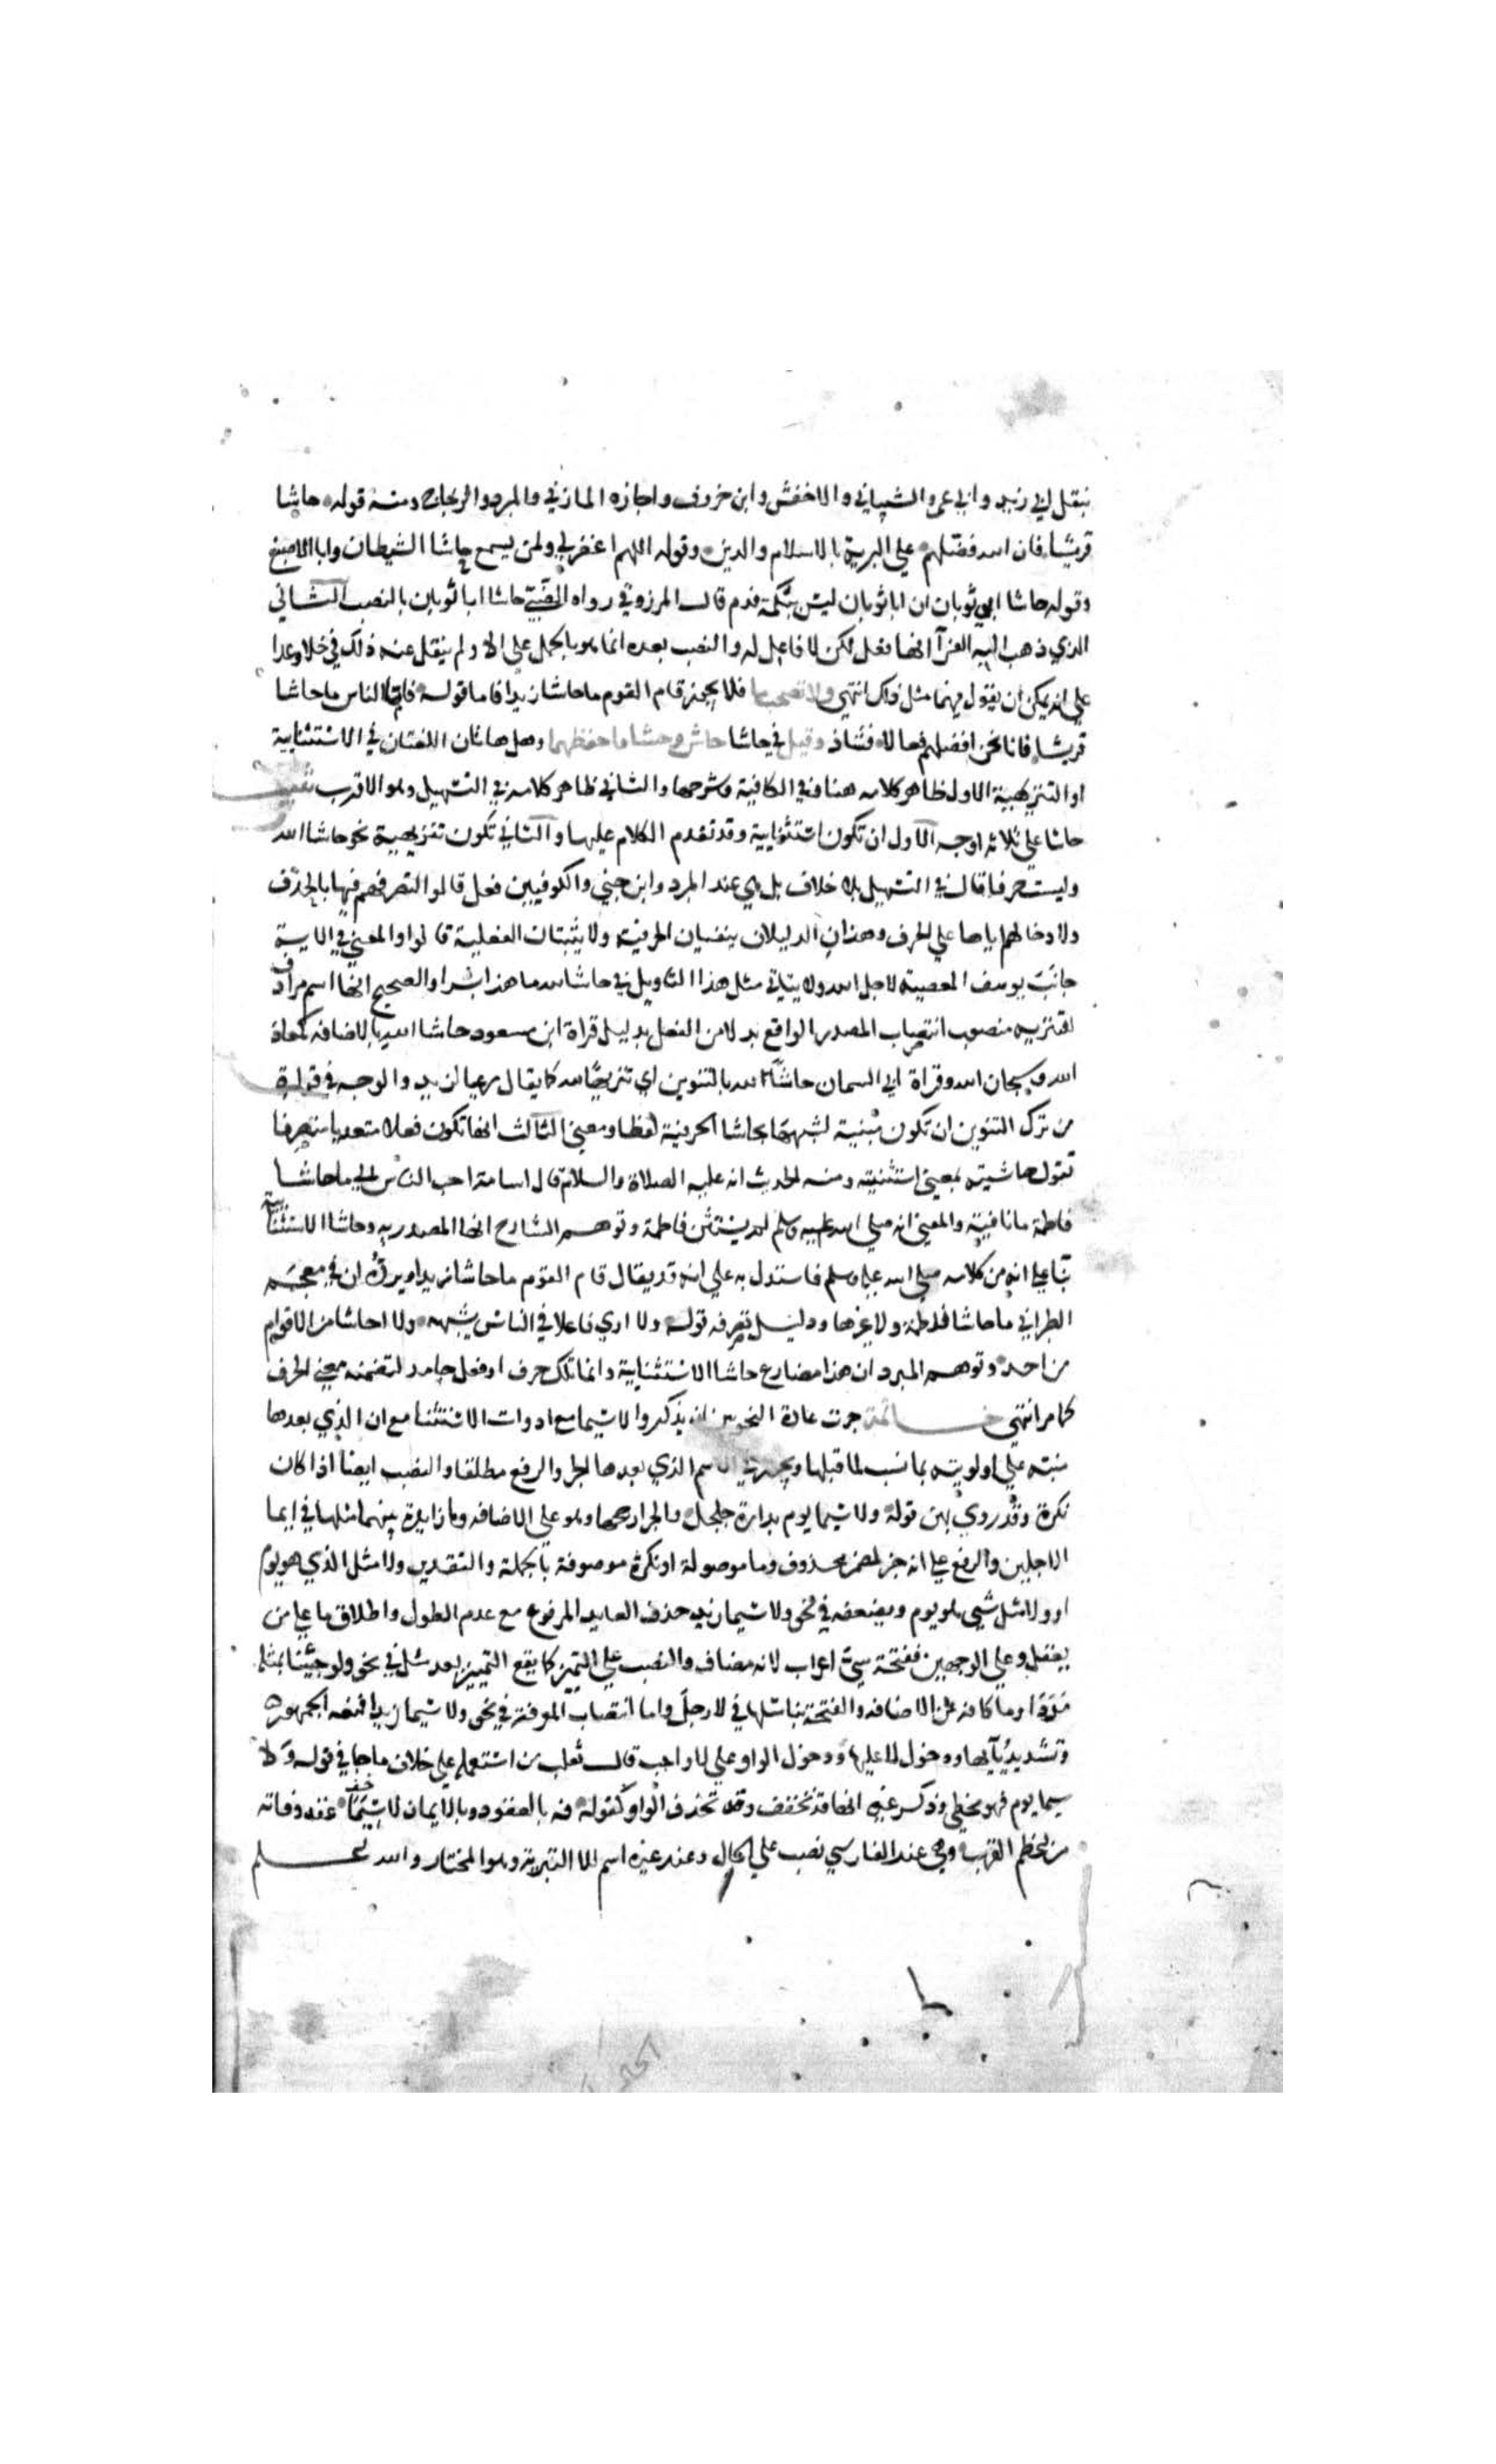 بنقل ابي زيد وابي عمرو الشيباني والاخفش وابن خروف واجازه المازني والمبرد والزجاج ومنه قوله حاشا
قريشا فان الله فضلهم علي البرية بالاسلام والدين وقوله اللهم اغفر لي ولمن يسمع حاشا الشيطان وابا الاصبغ
وقوله حاشا ابي ثوبان ان ابا ثوبان ليس ببكمة فدم قال المرزوقي رواه الضبي حاشا ابا ثوبان بالنصب الثاني
الذي ذهب اليه الفرا انها فعل لكن لا فاعل له والنصب بعده انما هو بالحمل علي الا ولم ينقل عنه ذلك في خلا وعدا
علي انه يمكن ان يقول فيهما مثل ذلك انتهي ولا تصحب ما فلا يجوز قام القوم ما حاشا زيدا فاما قوله فاما الناس ما حاشا
قريشا فانا نحن افضلهم فعالا فشاذ وقيل في حاشا حاش وحشا فاحفظهما وهل هاتان اللغتان في الاستثنايية
او التنزيهية الاول ظاهر كلامه هنا وفي الكافية وشرحها والثاني ظاهر كلامه في التسهيل وهو الاقرب تنبيه
حاشا علي ثلاثه اوجه الاول ان تكون استثنايية وقد تقدم الكلام عليها والثاني تكون تنزيهية نحو حاشا الله
وليست حرفا قال في التسهيل بلا خلاف بل هي عند المبرد وابن جني والكوفيين فعل قالوا لتصرفهم فيها بالحذف
ولادخالهم اياها علي الحرف وهذان الدليلان ينفيان الحرفية ولا يثبتان الفعلية قالوا والمعني في الاية
جانب يوسف المعصية لاجل الله ولا يتاتي مثل هذا التاويل في حاشا لله ما هذا بشرا والصحيح انها اسم مرادف
لتنزيه منصوب انتصاب المصدر الواقع بدلا من الفعل بدليل قراة ابن مسعود حاشا الله بالاضافه كمعاذ
الله وسبحان الله وقراة ابي السمان حاشا لله بالتنوين اي تنزيها لله كما يقال رعيا لزيد والوجه في قراة
من ترك التنوين ان تكون مبنية لشبهها بحاشا الحرفية لفظا ومعني الثالث انها تكون فعلا متعديا متصرفا
تقول حاشيته بمعني استثنيته ومنه الحديث انه عليه الصلاة والسلام قال اسامة احب الناس الي ما حاشا
فاطمة ما نافية والمعني انه صلي الله عليه وسلم لم يستثن فاطمة وتوهم الشارح انها المصدريه وحاشا الاستثنايية
بنا علي انه من كلامه صلي الله عليه وسلم فاستدل به علي انه قد يقال قام القوم ما حاشا زيدا ويرده ان في معجم
الطبراني ما حاشا فاطمة ولا غيرها ودليل تصرفه قوله ولا اري فاعلا في الناس يشبهه ولا احاشا من الاقوام
من احد وتوهم المبرد ان هذا مضارع حاشا الاستثنايية وانما تلك حرف او فعل جامد لتضمنه معني الحرف
كما مر انتهي خاتمة جرت عادة النحويين ان يذكروا لا سيما مع ادوات الاستثنا مع ان الذي بعدها
منبه علي اولويته بما نسب لما قبلها ويجوز في الاسم الذي بعدها الجر والرفع مطلقا والنصب ايضا اذا كان
نكرة وقد روي بهن قوله ولا سيما يوم بدارة جلجل والجر ارجحها وهو علي الاضافه وما زايدة بينهما مثلها في ايما
الاجلين والرفع علي انه خبر لمضمر محذوف وما موصولة او نكرة موصوفة بالجملة والتقدير ولا مثل الذي هو يوم
او ولا مثل شي هو يوم ويضعفه في نحو ولا سيما زيد حذف العايد المرفوع مع عدم الطول واطلاق ما علي من
يعقل وعلي الوجهين ففتحة سي اعراب لانه مضاف والنصب علي التمييز كما يقع التمييز بعد مثل في نحو ولو جيئنا بمثله
مددا وما كافه عن الاضافه والفتحة بنا مثلها في لا رجل واما انتصاب المعرفة في نحو ولا سيما زيدا فمنعه الجمهور
وتشديد يائها ودخول لا عليها ودخول الواو علي لا واجب قال ثعلب من استعمله علي خلاف ما جا في قوله ولا
سيما يوم فهو مخطي وذكر غيره انها قد تخفف وقد تحذف الواو كقوله فه بالعقود وبالايمان لا سيما عقد وفا به
من اعظم القرب وهي عند الفارسي نصب علي الحال وعند غيره اسم لا التبرية وهو المختار والله اعلم